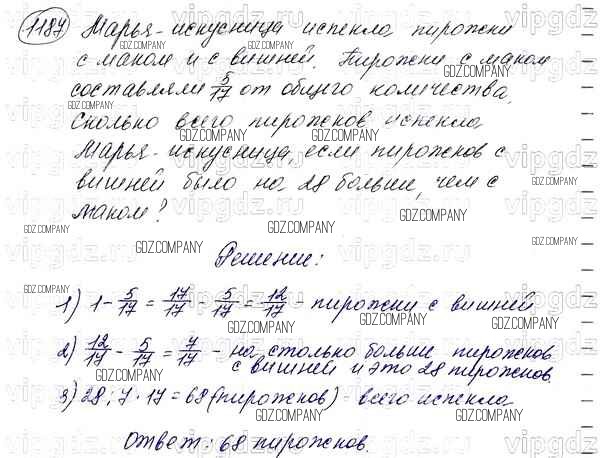 1187 Марья-искусница испекла пирожки
с маком и с вишней. Пирожки с маком
составляли 5/17 от общего количества.
Сколько всего пирожков испекла
Марья-искусница, если пирожков с
вишней было на 28 больше, чем с
маком?
Решение:
1) 1 - 5/17 = 17/17 - 5/17 = 12/17 - пирожки с вишней
2) 12/17 - 5/17 = 7/17 - на столько больше пирожков
с вишней и это 28 пирожков.
3) 28 : 7 · 17 = 68 (пирожков) - всего испекла
Ответ: 68 пирожков.